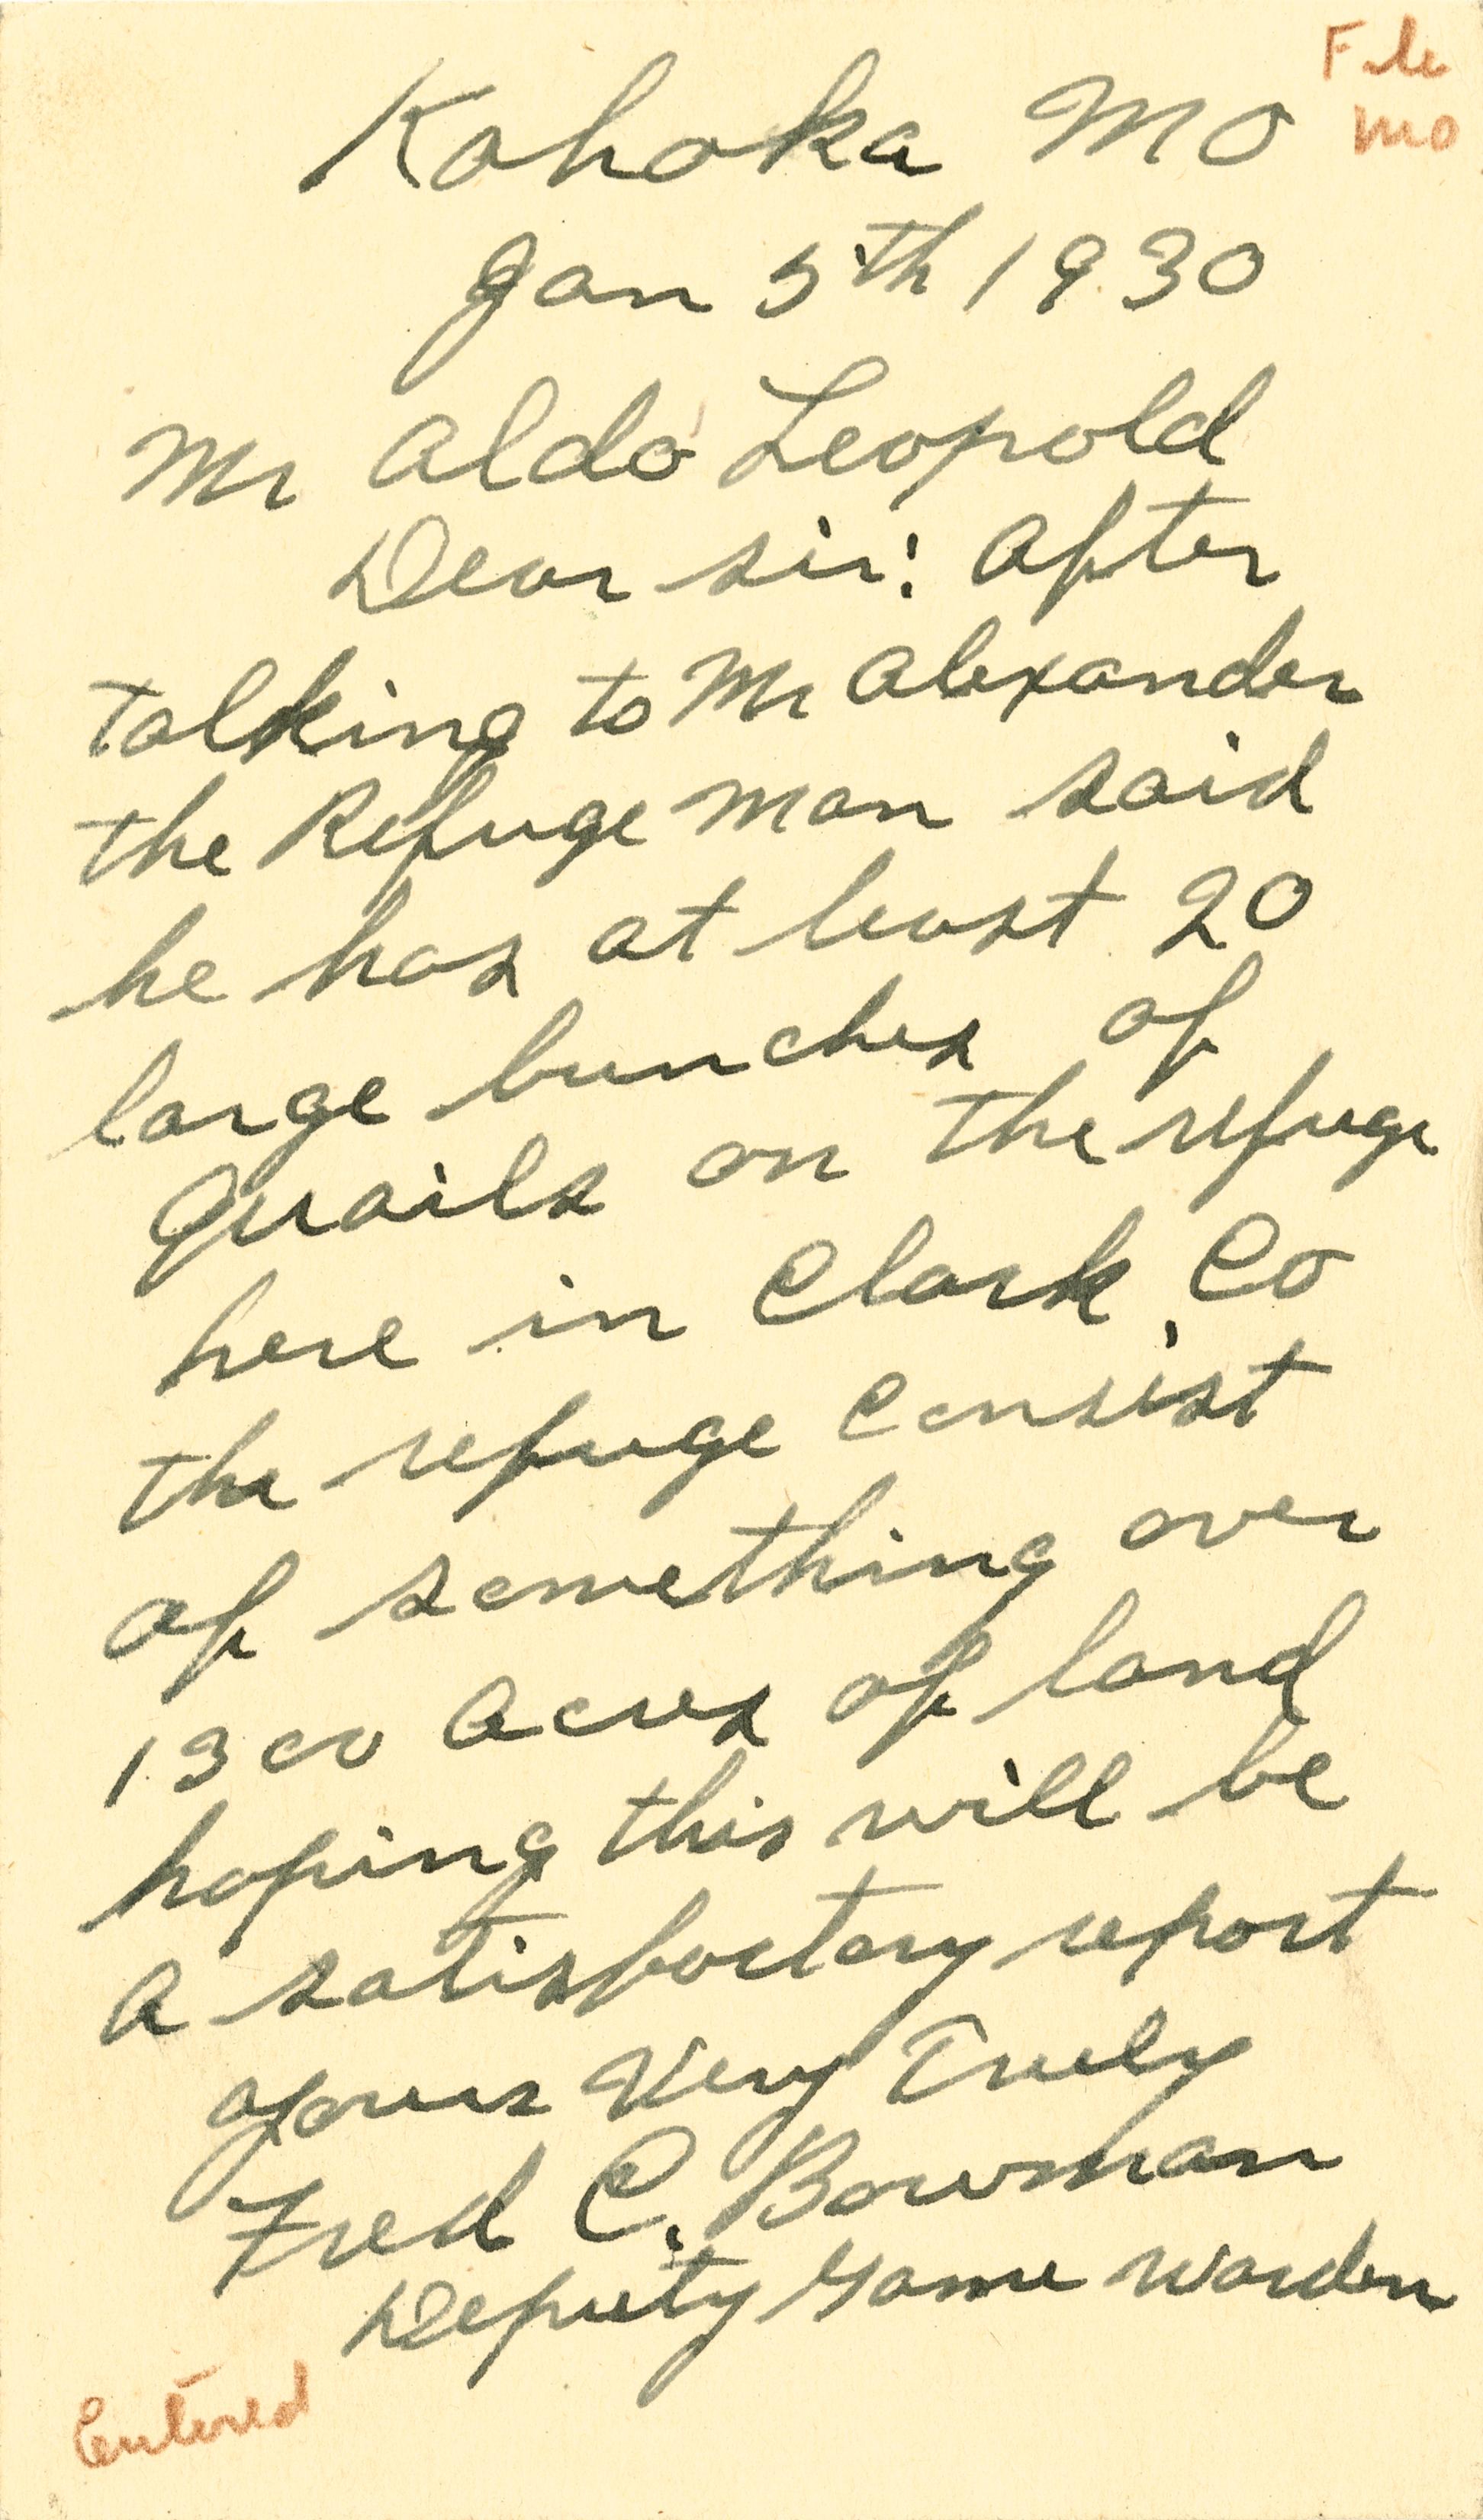 File
Mo
Kahoka MO
Jan 5th 1930
Mr Aldo Leopold
Dear sir: After
talking to Mr Alexander
the Refuge man said
he has at least 20
large bunches of
Quails on the refuge
here in Clark Co
the refuge consist
of something over
1300 acres of land
hoping this will be
a satisfactory report
yours Very Truely
Fred C. Bowman
Deputy Game Warden
Entered